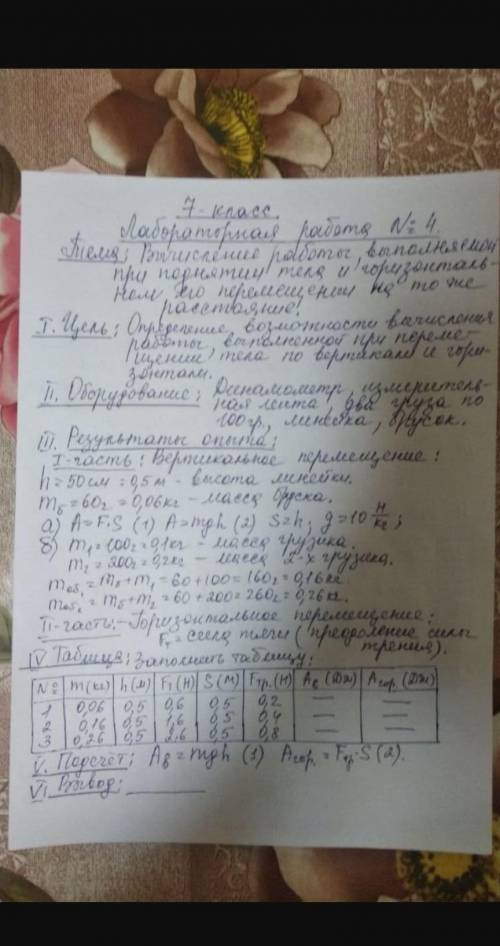 7-класс.
Лабораторная работа № 4.
Тема: Вычисление работы, выполняемой
при поднятии тела и горизонталь-
ном его перемещении на то же
расстояние.
I. Цель: Определение возможности вычисления
работы, выполненной при переме-
щении тела по вертикали и гори-
зонтали.
II. Оборудование: Динамометр, измеритель-
ная лента, два груза по
100гр, линейка, брусок.
III. Результаты опыта:
I-часть: Вертикальное перемещение:
h = 50см = 0,5м - высота линейки.
mб = 60г = 0,06кг - масса бруска.
а) A = F·S (1) A = mgh (2) S = h; g = 10 Н/кг;
б) m₁ = 100г = 0,1кг - масса грузика.
m₂ = 200г = 0,2кг - масса 2-х грузика.
mоб₁ = mб + m₁ = 60 + 100 = 160г = 0,16кг
mоб₂ = mб + m₂ = 60 + 200 = 260г = 0,26кг.
II-часть: - Горизонтальное перемещение:
Fт = сила тяги (преодоление силы
трения).
IV Таблица: Заполнить таблицу:
№ m(кг) h(м) Fт(Н) S(м) Fтр.(Н) Aв(Дж) Aгор.(Дж)
1 0,06 0,5 0,6 0,5 0,2 — —
2 0,16 0,5 1,6 0,5 0,4 — —
3 0,26 0,5 2,6 0,5 0,8 — —
V. Подсчёт: Aв = mgh (1) Aгор. = Fтр·S (2).
VI Вывод: ________